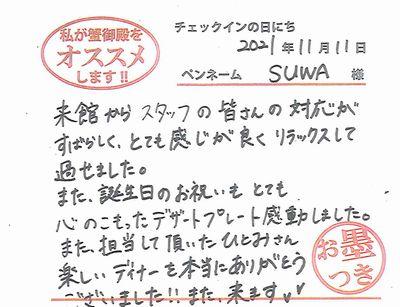 私が蟹御殿を
オススメ
します!!
チェックインの日にち
2021年11月11日
ペンネーム SUWA 様
来館からスタッフの皆さんの対応が
すばらしく、とても感じが良くリラックスして
過せました。
また、誕生日のお祝いもとても
心のこもったデザートプレート感動しました。
また、担当して頂いたひとみさん
楽しいディナーを本当にありがとう
ございました!!また、来ます♥♥
お墨
つき